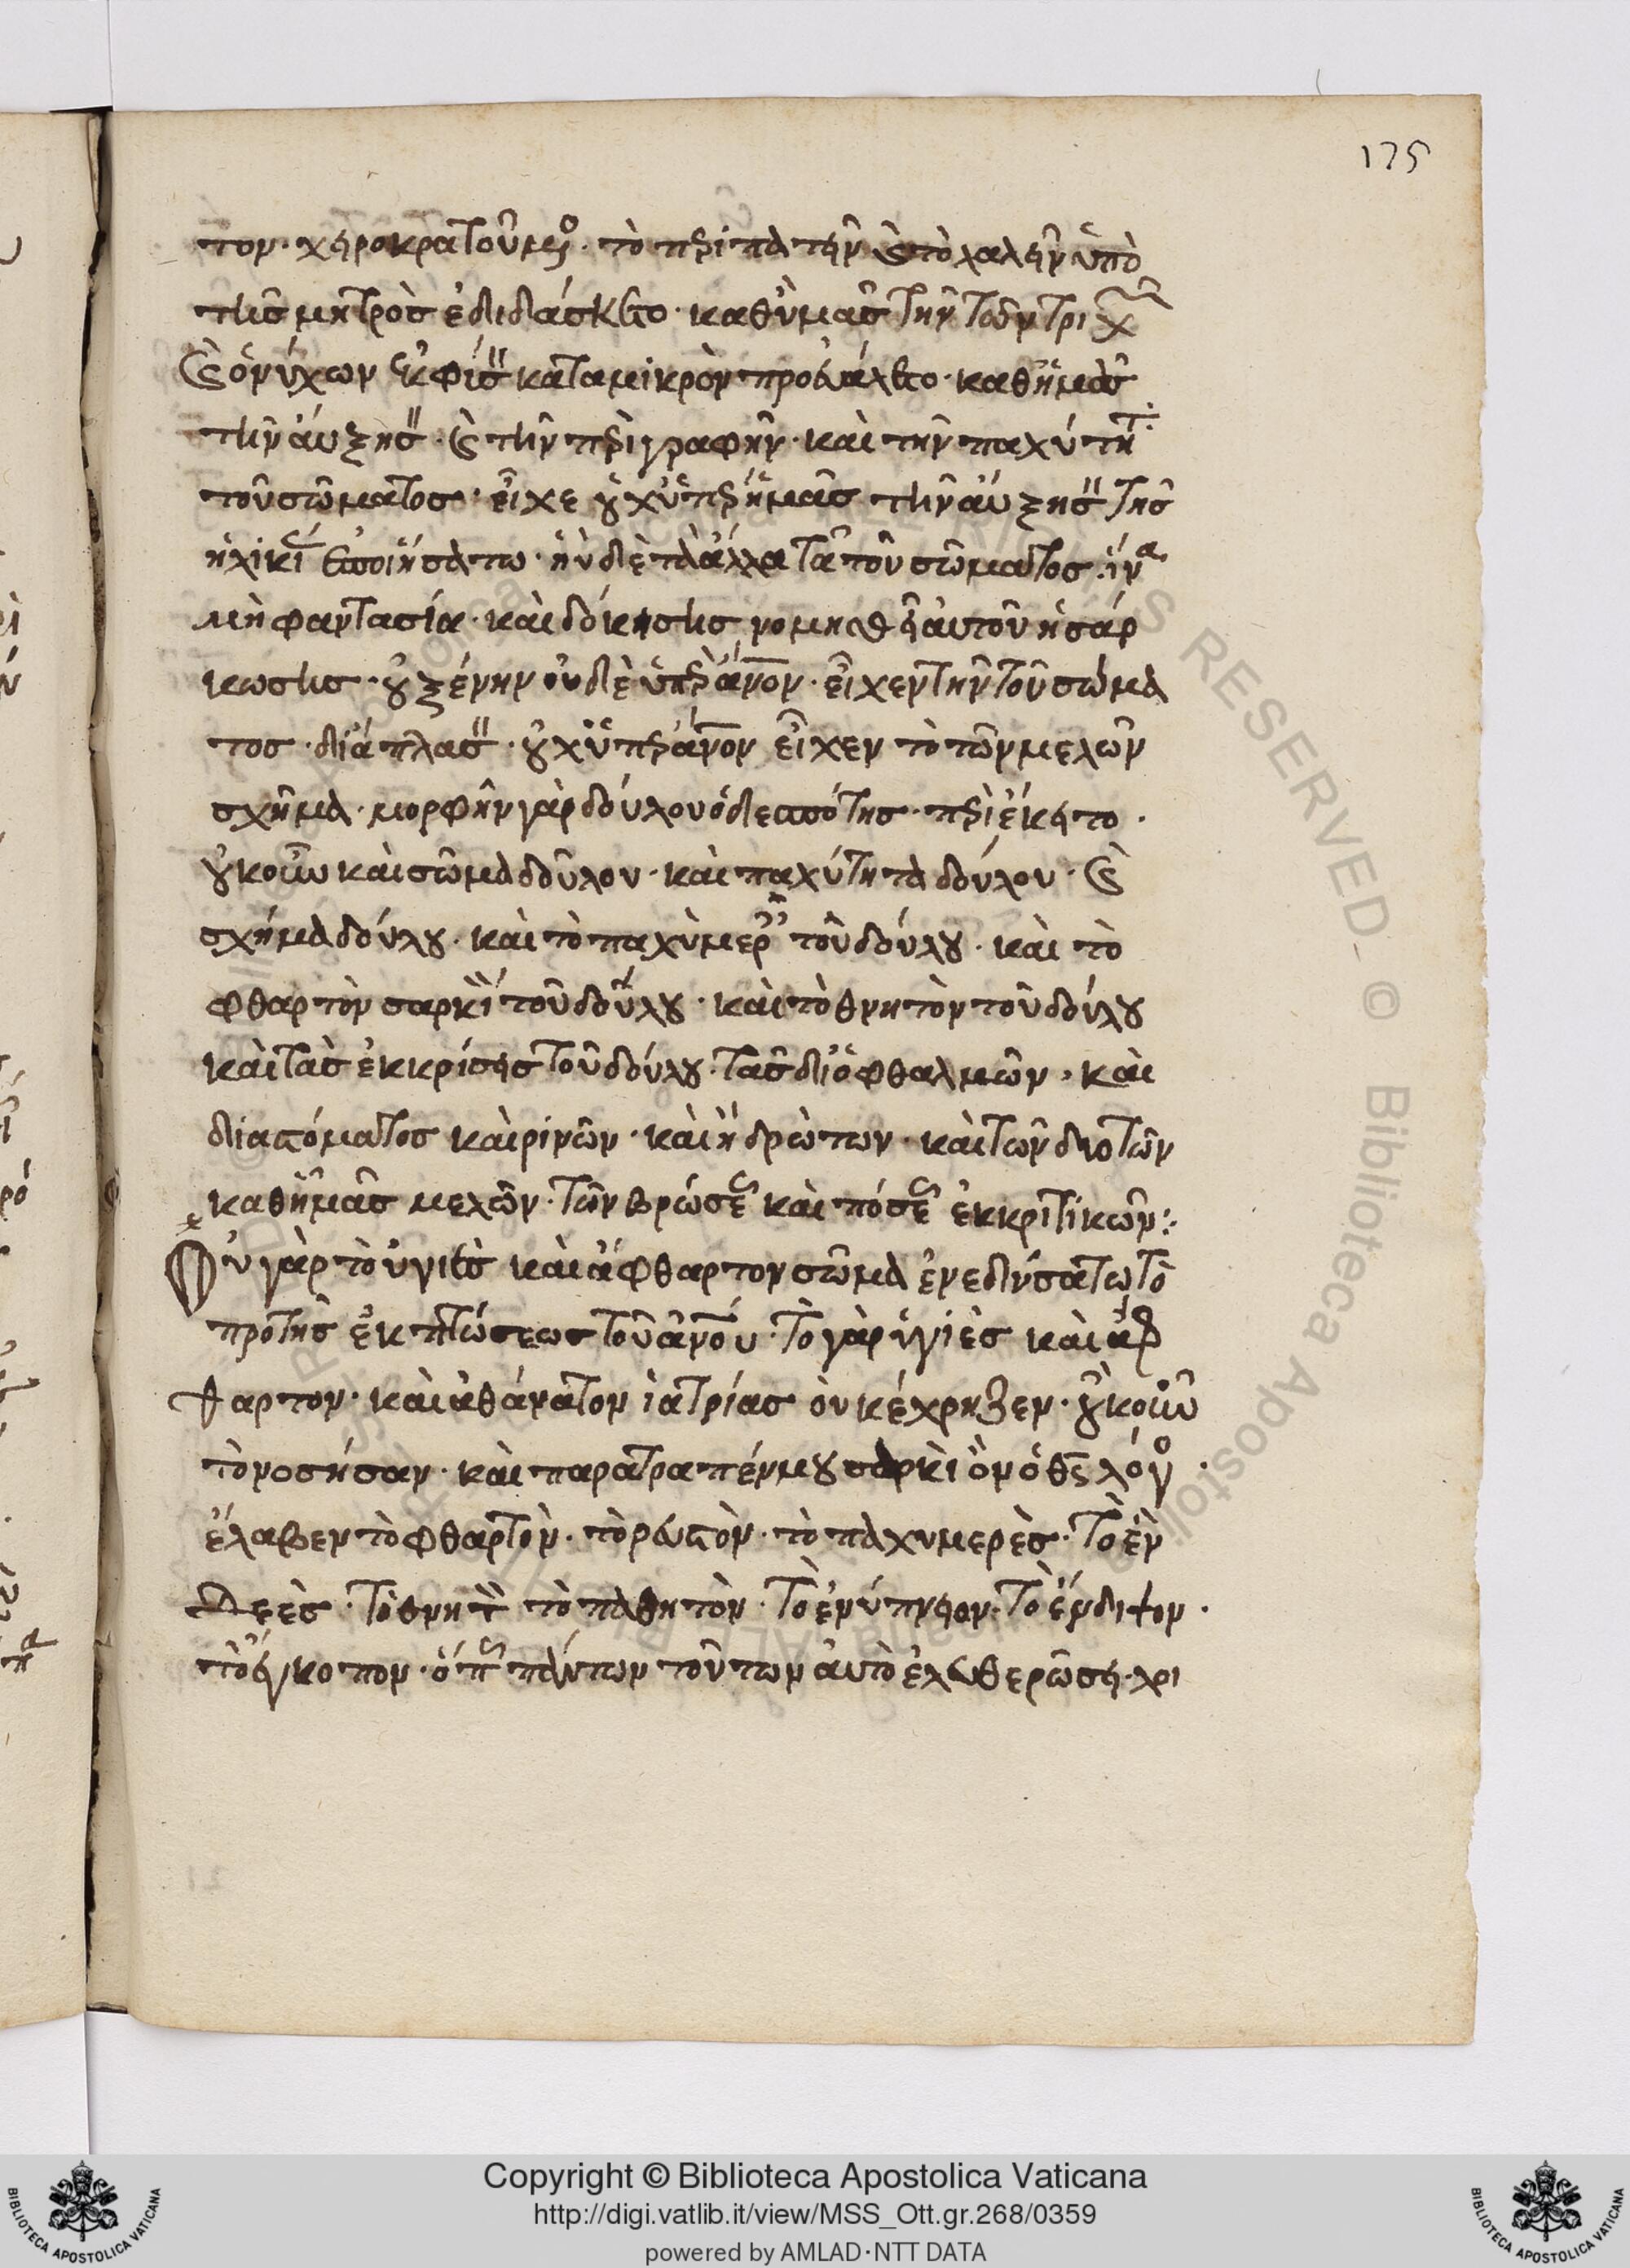 175
τον· χειροκρατούμενος· τὸ περιπατεῖν καὶ τὸ λαλεῖν ὑπὸ
τῆς μητρὸς ἐδιδάσκετο· καθ' ὑμᾶς τὴν τῶν τριχῶν
καὶ ὀνύχων ἔκφυσιν κατὰ μικρὸν προεβάλετο· καθ' ἡμᾶς
τὴν αὔξησιν· καὶ τὴν περιγραφὴν· καὶ τὴν παχύτητα
τοῦ σώματος· εἶχε οὐχ ὑπὲρ ἡμᾶς τὴν αὔξησιν τῆς
ἡλικίας ἐποιήσατο· ἢ δὲ τὰ ἄλλα τὰ τοῦ σώματος· ἵνα
μὴ φαντασία· καὶ δόκησις νομισθῇ αὐτοῦ ἡ σάρ
κωσις· οὐ ξένην οὐδὲ ὑπὲρ ἄνον· εἶχεν τὴν τοῦ σώμα
τος· διάπλασιν· οὐχ ὑπὲρ ἄνον εἶχεν τὸ τῶν μελῶν
σχῆμα· μορφὴν γὰρ δούλου ὁ δεσπότης· περιέκειτο·
οὐκοῦν καὶ σῶμα δοῦλου· καὶ παχύτητα δούλου· καὶ
σχήμα δούλου· καὶ τὸ παχὺμερὲς τοῦ δούλου· καὶ τὸ
φθαρτὸν σαρκίον τοῦ δούλου· καὶ τὸ θνητὸν τοῦ δούλου
καὶ τὰς ἐκκρίσεις τοῦ δούλου· τὰς δι' ὀφθαλμῶν· καὶ
διὰ στόματος καὶ ῥινῶν· καὶ ἡδρώτων· καὶ τῶν διοτῶν
καθ' ἡμᾶς μελῶν· τῶν βρώσεως καὶ πόσεως ἐκκριτικῶν:
Οὐ γὰρ τὸ ὑγιὲς καὶ ἄφθαρτον σῶμα ἐνεδύσατω τὸ
πρὸ τῆς ἐκπτώσεως τοῦ ἀνου· τὸ γὰρ ὑγιὲς καὶ ἄφ
θαρτον· καὶ ἀθάνατον ἰατρίας οὐ κέχρηζεν· οὐκοῦν
τὸ νοσήσαν· καὶ παρατραπέν μου σαρκίον ὁ θς λόγος·
ἔλαβεν τὸ φθαρτὸν· τὸ ῥευστὸν· τὸ παχυμερὲς· τὸ ἐν
δεὲς· τὸ θνητὸν τὸ παθητὸν· τὸ ἐνύπνηον· τὸ ἔνδιψον·
τὸ ἔγκοπον· ὅπως πάντων τούτων αὐτὸ ἐλευθερώσῃ· χρι
Copyright © Biblioteca Apostolica Vaticana
http://digi.vatlib.it/view/MSS_Ott.gr.268/0359
powered by AMLAD·NTT DATA
BIBLIOTECA APOSTOLICA VATICANA
BIBLIOTECA APOSTOLICA VATICANA